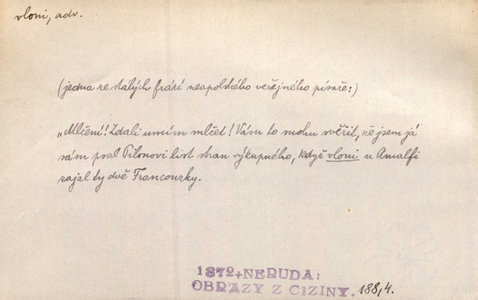 vloni, adv.
(jedna ze stálých frází neapolského veřejného písaře:)
„Mlčení! Zdali umím mlčet! Vám to mohu svěřit, že jsem já
sám psal Pilonovi list stran výkupného, když vloni u Amalfi
zajal ty dvě Francouzky.
1872+NERUDA:
OBRAZY Z CIZINY. 188,4.